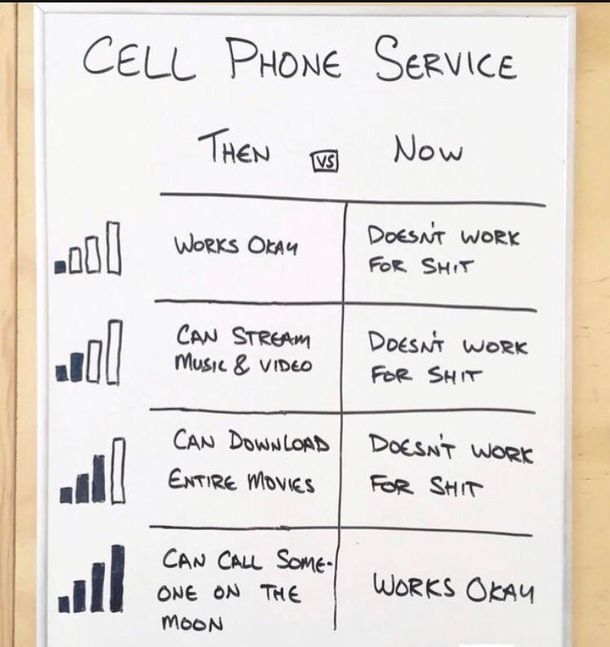 CELL PHONE SERVICE
THEN VS NOW
WORKS OKAY
DOESN'T WORK
FOR SHIT
CAN STREAM
MUSIC & VIDEO
DOESN'T WORK
FOR SHIT
CAN DOWNLOAD
ENTIRE MOVIES
DOESN'T WORK
FOR SHIT
CAN CALL SOME-
ONE ON THE
MOON
WORKS OKAY